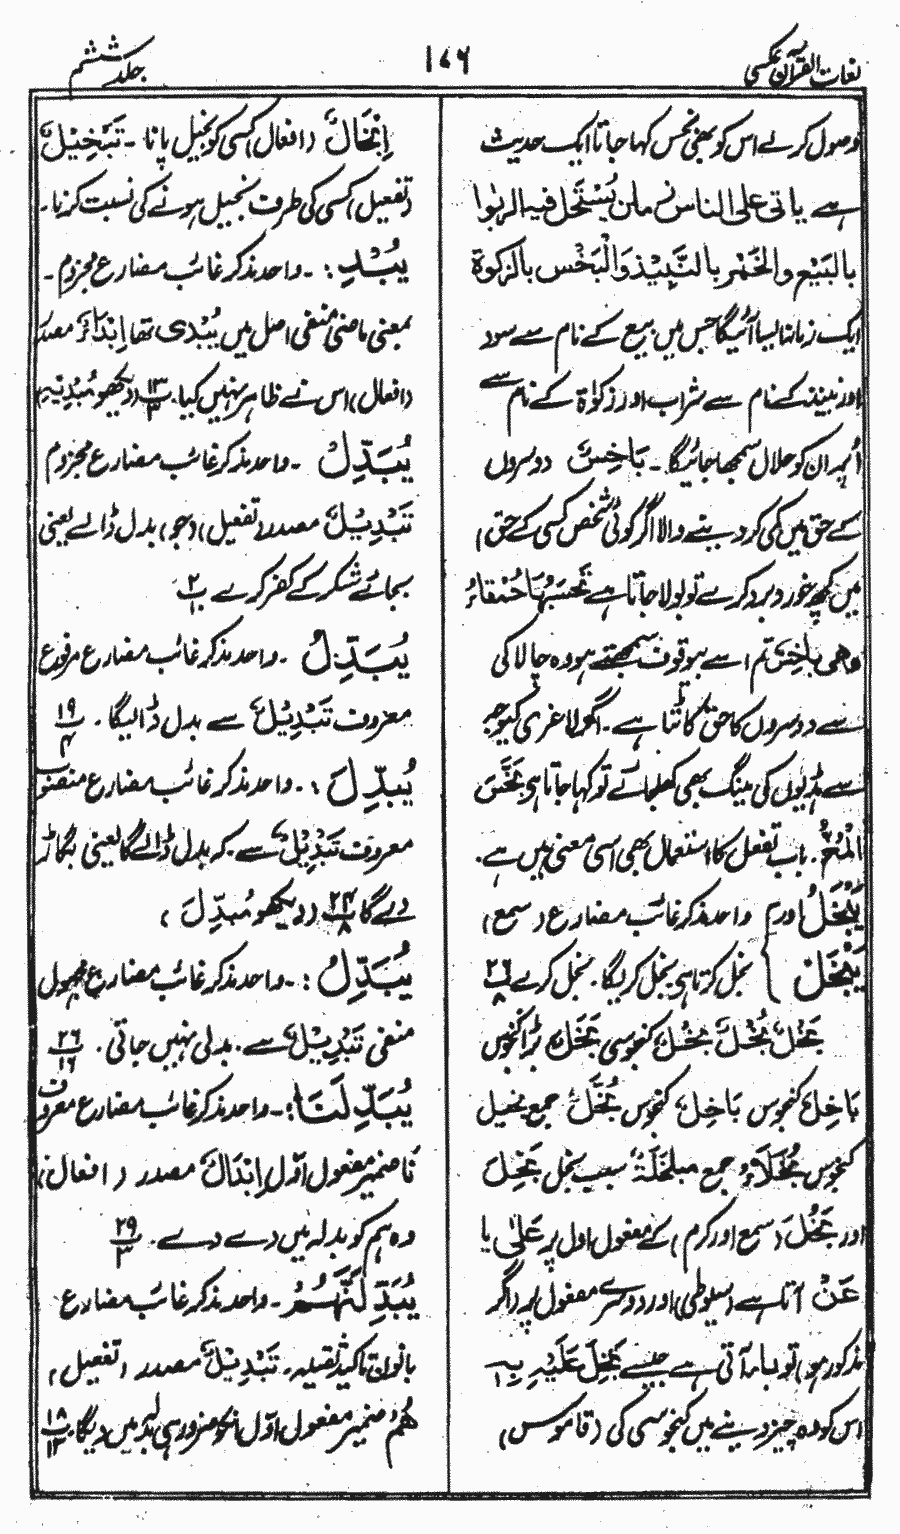 لغات القرآن عکسی
۱۷۶
جلد ششم
وصول کرلے اس کو بھی نجس کہا جاتا ایک حدیث
ہے یاتی علی الناس زمان یستحل فیہ الربوا
بالبیع والخمر بالنبیذ والبخس بالزکوة
ایک زمانہ ایسا آئیگا جس میں بیع کے نام سے سود
اور نبیذ کے نام سے شراب اور زکوٰة کے نام سے
اُمور ان کو حلال سمجھا جائیگا۔ بَاخِسٌ دوسروں
کے حق میں کمی کر دینے والا اگر کوئی شخص کسی کے حق
میں کچھ غور و برد کرلے تو بولا جاتا ہے تَحْسَبُهَا حَمْقَاءَ
وھی باخس تم اسے بیوقوف سمجھتے ہو وہ چالاکی
سے دوسروں کا حق کاٹتا ہے۔ اگولا غری کیوجہ
سے ہڈیوں کی مینگ بھی کھلجائے تو کہا جاتا ہی بَخَّسَ
الْمُخُّ۔ باب تفعل کا استعمال بھی اسی معنی میں ہے۔
یَبْخَلُ اور م واحد مذکر غائب مضارع (سمع)
یَبْخَلْ بخل کرتا ہی بخل کر لیگا۔ بخل کرے ۲۶/۸
بَخْلٌ بُخْلٌ بُخُلٌ بَخَلٌ کنجوسی بڑا کنجوس
بَاخِلٌ کنجوس بَاخِلٌ کنجوس بُخَّلٌ جمع بخیل
کنجوس بُخَلَآءُ جمع مَبْخَلَةٌ سبب بخل بَخِلَ
اور بَخُلَ (سمع اور کرم) کے مفعول اول پر عَلٰی یا
عَنْ آتا ہے (سیوطی) اور دوسرے مفعول پر (اگر
مذکور ہو) تو باء آتی ہے جیسے بَخِلَ عَلَیْہِ بِہٖ
اس کو وہ چیز دینے میں کنجوسی کی (قاموس)
اِبْخَالٌ (افعال) کسی کو بخیل پانا۔ تَبْخِیْلٌ
(تفعیل) کسی کی طرف بخیل ہونے کی نسبت کرنا۔
یُبْدِ :۔ واحد مذکر غائب مضارع مجزوم۔
بمعنی ماضی منفی اصل میں یُبْدِی تھا اِبْدَاءٌ مصدر
(افعال) اس نے ظاہر نہیں کیا۔ ۱۳/۳ (دیکھو مُبْدِیْہِ)
یُبَدِّلْ ۔ واحد مذکر غائب مضارع مجزوم
تَبْدِیْلٌ مصدر (تفعیل) (جو) بدل ڈالے یعنی
بجائے شکر کے کفر کرے ۲/۱
یُبَدِّلُ ۔ واحد مذکر غائب مضارع مرفوع
معروف تَبْدِیْلٌ سے بدل ڈالیگا۔ ۱۹/۴
یُبَدِّلَ :۔ واحد مذکر غائب مضارع منصوب
معروف تَبْدِیْلٌ سے۔ کہ بدل ڈالے گا یعنی بگاڑ
دے گا ۲۴/۸ (دیکھو مُبَدِّلَ)
یُبَدَّلُ :۔ واحد مذکر غائب مضارع مجہول
منفی تَبْدِیْلٌ سے۔ بدلی نہیں جاتی۔ ۲۶/۱۶
یُبَدِّلَنَا :۔ واحد مذکر غائب مضارع معروف
نَا ضمیر مفعول اوّل اِبْدَالٌ مصدر (افعال)
وہ ہم کو بدلہ میں دے دے۔ ۲۹/۳
یُبَدِّلَنَّهُمْ ۔ واحد مذکر غائب مضارع
بانون تاکید ثقیلہ۔ تَبْدِیْلٌ مصدر (تفعیل)
هُمْ ضمیر مفعول اوّل انکو ضرور ہی بدلہ میں دیگا ۱۸/۱۳